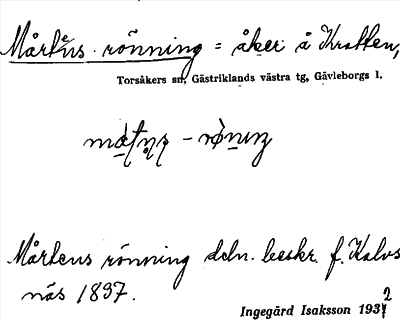 Mårtens rönning = åker å Kratten,
Torsåkers sn, Gästriklands västra tg, Gävleborgs l.
Mårtens rönning dels. beskr. f. Kalvs
näs 1897.
Ingegärd Isaksson 1932